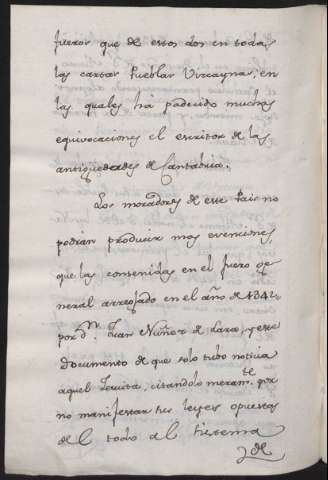 fueros que de estos dos en todas
las cartas Pueblas Vizcaynas, en
las quales há padecido muchas
equivocaciones el escritor de las
antiguedades de Cantabria.
Los moradores de este Pais no
podrán producir mas evenciones,
que las contenidas en el fuero ge
neral arreglado en el año de 1342,
por Dn. Juan Nuñez de Lara, y este
documento de que solo tubo noticia
aquel Jesuita, citandolo meramte. por
no manifestar sus leyes opuestas
del todo al sistema
de